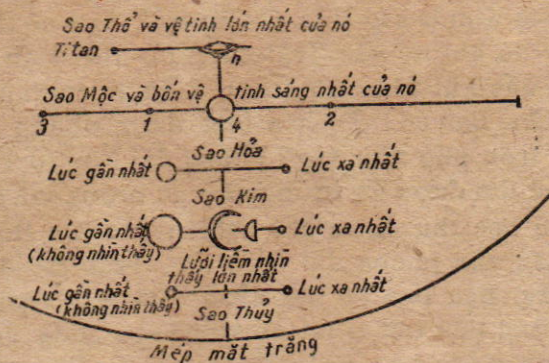 Sao Thổ và vệ tinh lớn nhất của nó
Titan
n
Sao Mộc và bốn vệ tinh sáng nhất của nó
3 1 4 2
Sao Hỏa
Lúc gần nhất Lúc xa nhất
Sao Kim
Lúc gần nhất Lúc xa nhất
(không nhìn thấy)
Lưỡi liềm nhìn
thấy lớn nhất
Lúc gần nhất Lúc xa nhất
(không nhìn thấy)
Sao Thủy
Mép mặt trăng